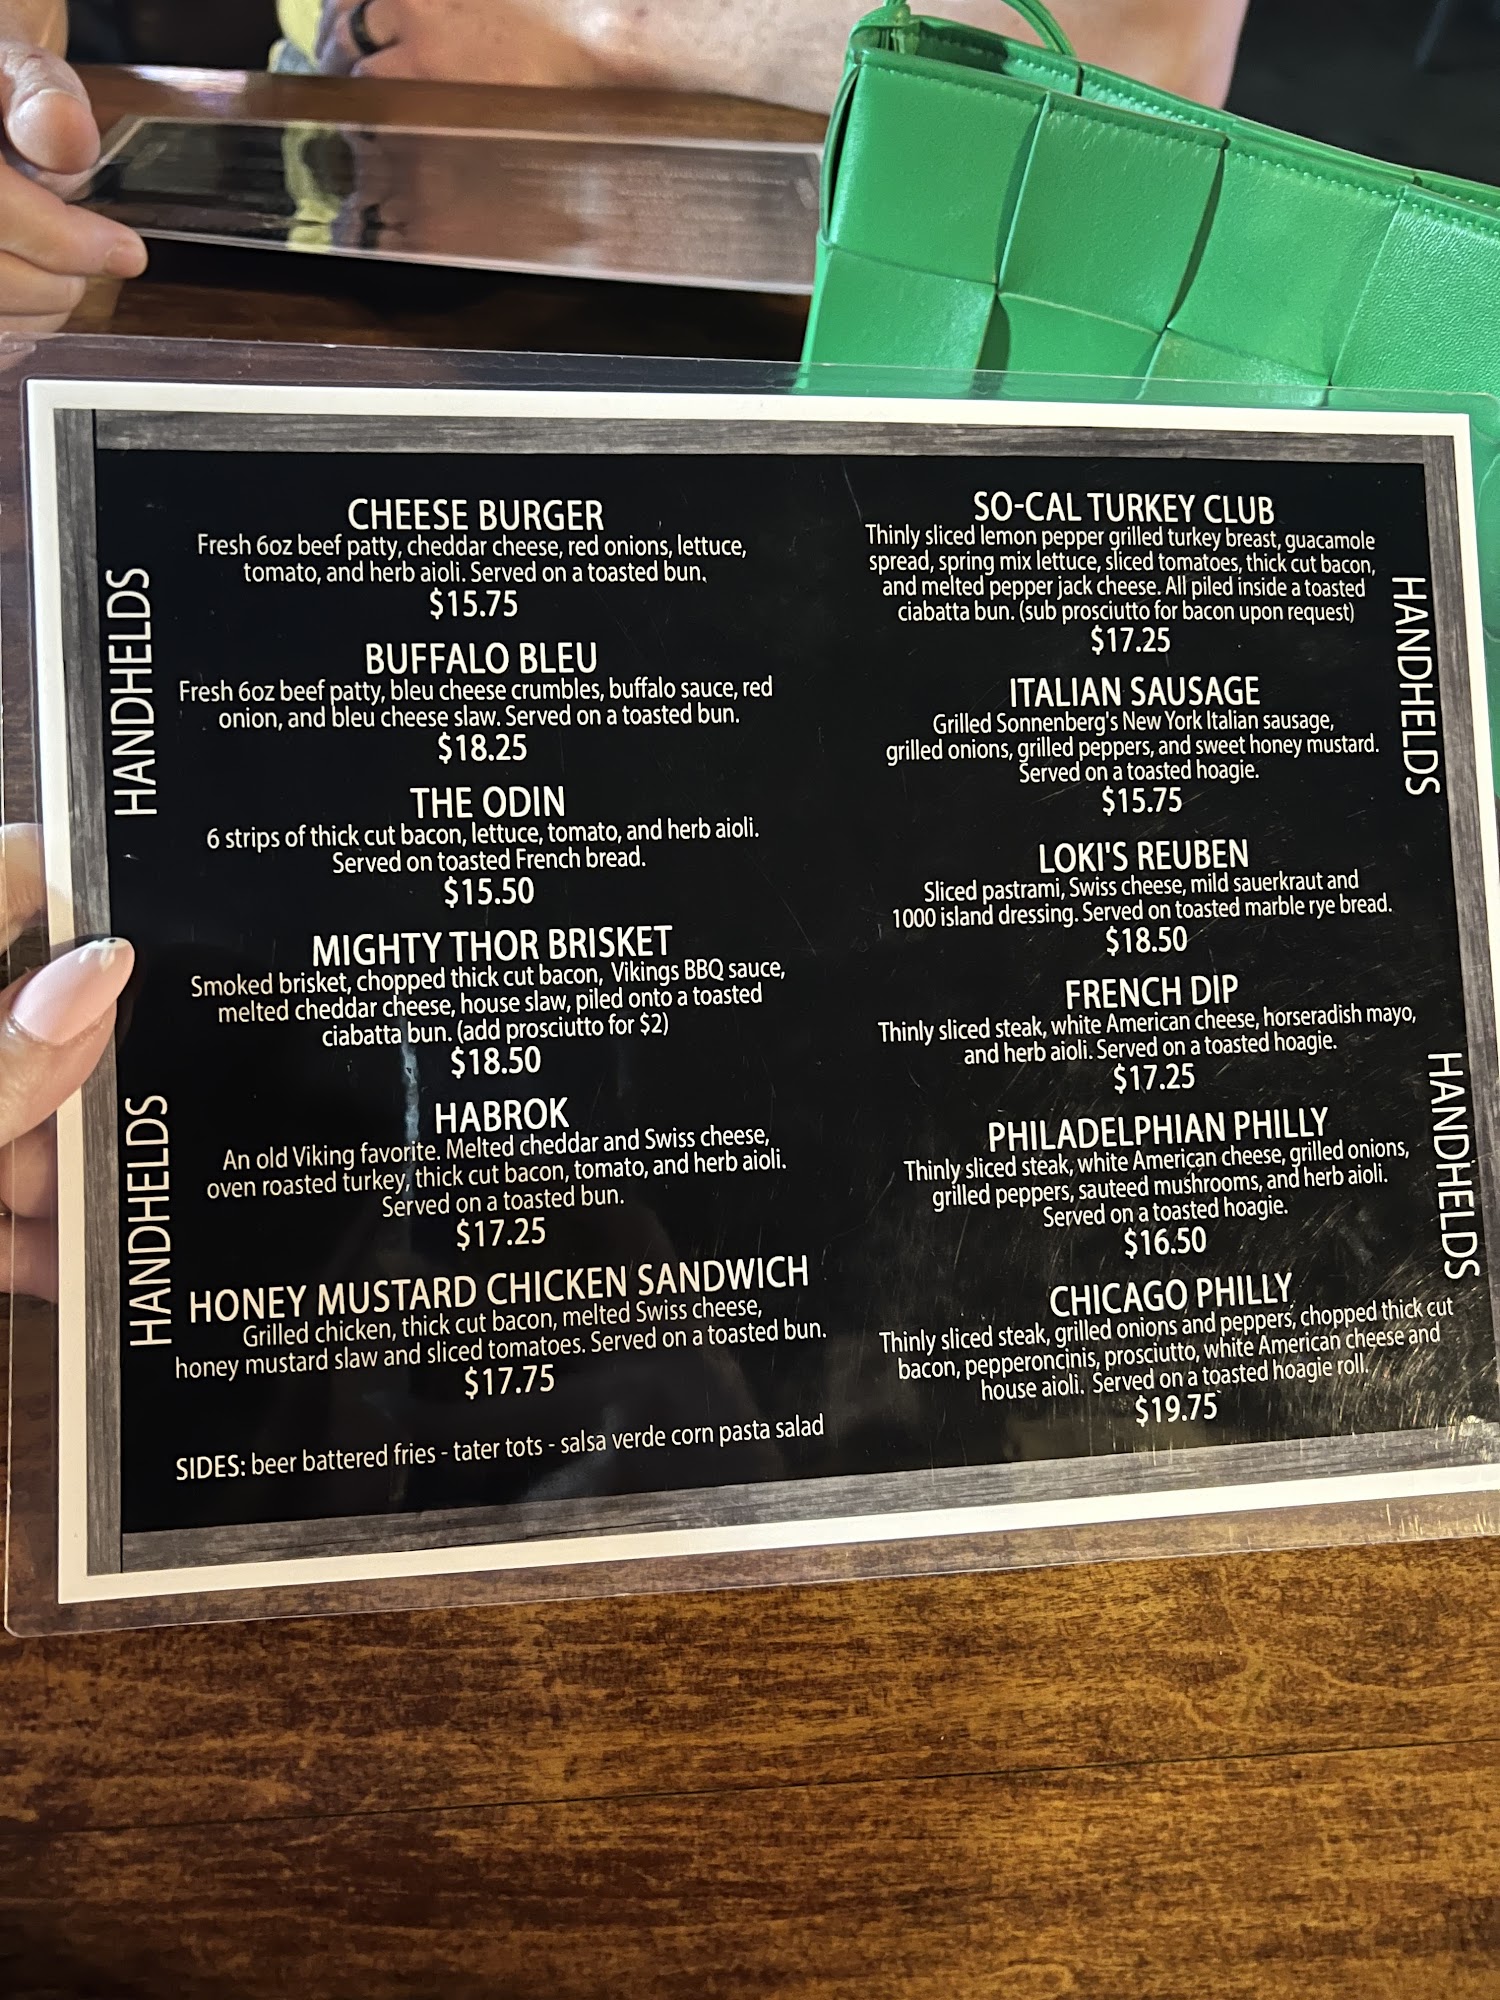 HANDHELDS
HANDHELDS
CHEESE BURGER
Fresh 6oz beef patty, cheddar cheese, red onions, lettuce,
tomato, and herb aioli. Served on a toasted bun.
$15.75
BUFFALO BLEU
Fresh 6oz beef patty, bleu cheese crumbles, buffalo sauce, red
onion, and bleu cheese slaw. Served on a toasted bun.
$18.25
THE ODIN
6 strips of thick cut bacon, lettuce, tomato, and herb aioli.
Served on toasted French bread.
$15.50
MIGHTY THOR BRISKET
Smoked brisket, chopped thick cut bacon, Vikings BBQ sauce,
melted cheddar cheese, house slaw, piled onto a toasted
ciabatta bun. (add prosciutto for $2)
$18.50
HABROK
An old Viking favorite. Melted cheddar and Swiss cheese,
oven roasted turkey, thick cut bacon, tomato, and herb aioli.
Served on a toasted bun.
$17.25
HONEY MUSTARD CHICKEN SANDWICH
Grilled chicken, thick cut bacon, melted Swiss cheese,
honey mustard slaw and sliced tomatoes. Served on a toasted bun.
$17.75
SIDES: beer battered fries - tater tots - salsa verde corn pasta salad
SO-CAL TURKEY CLUB
Thinly sliced lemon pepper grilled turkey breast, guacamole
spread, spring mix lettuce, sliced tomatoes, thick cut bacon,
and melted pepper jack cheese. All piled inside a toasted
ciabatta bun. (sub prosciutto for bacon upon request)
$17.25
ITALIAN SAUSAGE
Grilled Sonnenberg's New York Italian sausage,
grilled onions, grilled peppers, and sweet honey mustard.
Served on a toasted hoagie.
$15.75
LOKI'S REUBEN
Sliced pastrami, Swiss cheese, mild sauerkraut and
1000 island dressing. Served on toasted marble rye bread.
$18.50
FRENCH DIP
Thinly sliced steak, white American cheese, horseradish mayo,
and herb aioli. Served on a toasted hoagie.
$17.25
PHILADELPHIAN PHILLY
Thinly sliced steak, white American cheese, grilled onions,
grilled peppers, sauteed mushrooms, and herb aioli.
Served on a toasted hoagie.
$16.50
CHICAGO PHILLY
Thinly sliced steak, grilled onions and peppers, chopped thick cut
bacon, pepperoncinis, prosciutto, white American cheese and
house aioli. Served on a toasted hoagie roll.
$19.75
HANDHELDS
HANDHELDS